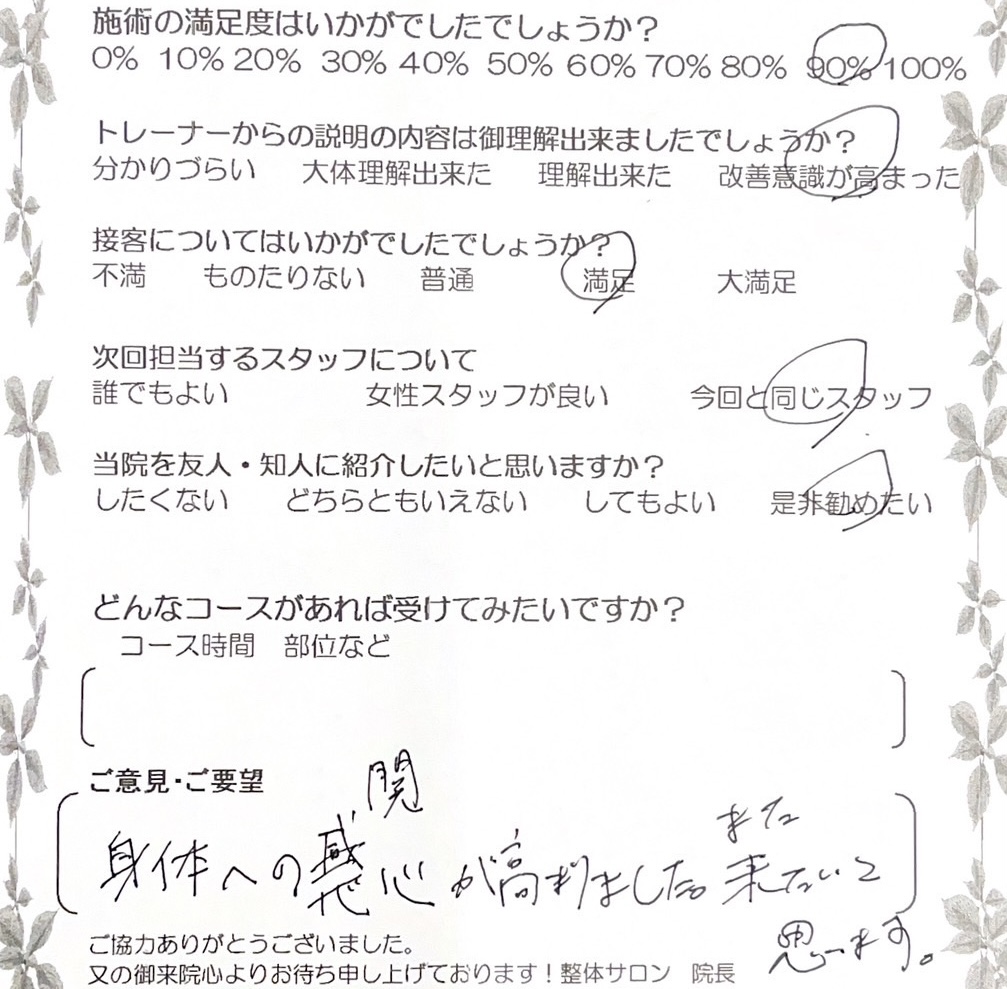 施術の満足度はいかがでしたでしょうか？
0% 10% 20% 30% 40% 50% 60% 70% 80% 90% 100%
トレーナーからの説明の内容は御理解出来ましたでしょうか？
分かりづらい 大体理解出来た 理解出来た 改善意識が高まった
接客についてはいかがでしたでしょうか？
不満 ものたりない 普通 満足 大満足
次回担当するスタッフについて
誰でもよい 女性スタッフが良い 今回と同じスタッフ
当院を友人・知人に紹介したいと思いますか？
したくない どちらともいえない してもよい 是非勧めたい
どんなコースがあれば受けてみたいですか？
コース時間 部位など
ご意見・ご要望
関
また
身体への感心が高まりました。来たいと
思います。
ご協力ありがとうございました。
又の御来院心よりお待ち申し上げております！整体サロン 院長